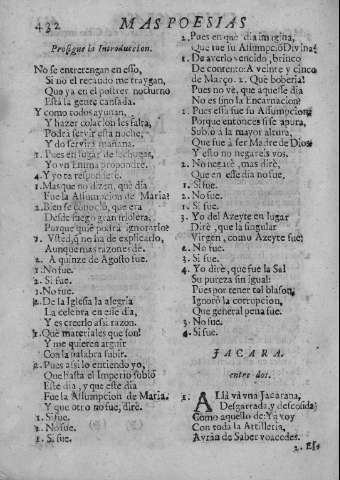 432 MAS POESIAS
Prosigue la Introduccion.
No se entretengan en esso,
Si no el recaudo me traygan,
Que ya en el postrer nocturno
Està la gente cansada.
Y como todos ayunan,
Y hazer colacion les falta,
Podrà servir esta noche,
Y do servirà mañana.
1. Pues en lugar de
Yo vn Enima propondrè.
4. Y yo te responderè.
1. Mas que no dizen, què dia
Fue la Assumpcion de Maria?
2. Bien se conoció, que era
Desde luego gran friolera,
Porque què podrà ignorarlo?
1. Vsted, q no ha de explicarlo,
Aunque mas razones dè.
2. A quinze de Agosto fue.
1. No fue.
2. Si fue.
1. No fue.
2. De la Iglesia la alegria
La celebra en esse dia,
Y es creerlo assi razon.
1. Què materiales que son!
Y me quieren arguir
Con la palabra subir.
2. Pues assi lo entiendo yo,
Que hasta el Imperio subiò
Este dia, y que este dia
Fue la Assumpcion de Maria.
Y que otro no fue, dirè.
1. Si fue.
2. No fue.
1. Si fue.
2. Pues en què dia imagina,
Que fue su Assumpciō Divina?
1. De averlo vencido, brinco
De contento: A veinte y cinco
de Março. 2. Què boberia!
Pues no vè, que aquesse dia
No es sino la Encarnacion?
1. Pues essa fue su Assumpcion;
Porque entonces si se apura,
Subiò à la mayor altura,
Que fue à ser Madre de Dios
Y esso no negareis vos.
2. No negarè, mas dirè,
Que en esse dia no fue,
1. Si fue.
2. No fue.
1. Si fue.
3. Yo del Azeyte en lugar
Dirè, que la singular
Virgen, como Azeyte fue.
2. No fue.
3. Si fue.
4. Yo dirè, que fue la Sal
Su pureza sin igual:
Pues por tener tal blason,
Ignorò la corrupcion,
Que general pena fue.
3. No fue.
4. Si fue.
JACARA.
entre dos.
1. ALlà và vna Jacarana,
Desgarrada, y descosida;
Como aquello de: Ya voy
Con toda la Artilleria,
Avràn de Saber voacedes.
2. Es-